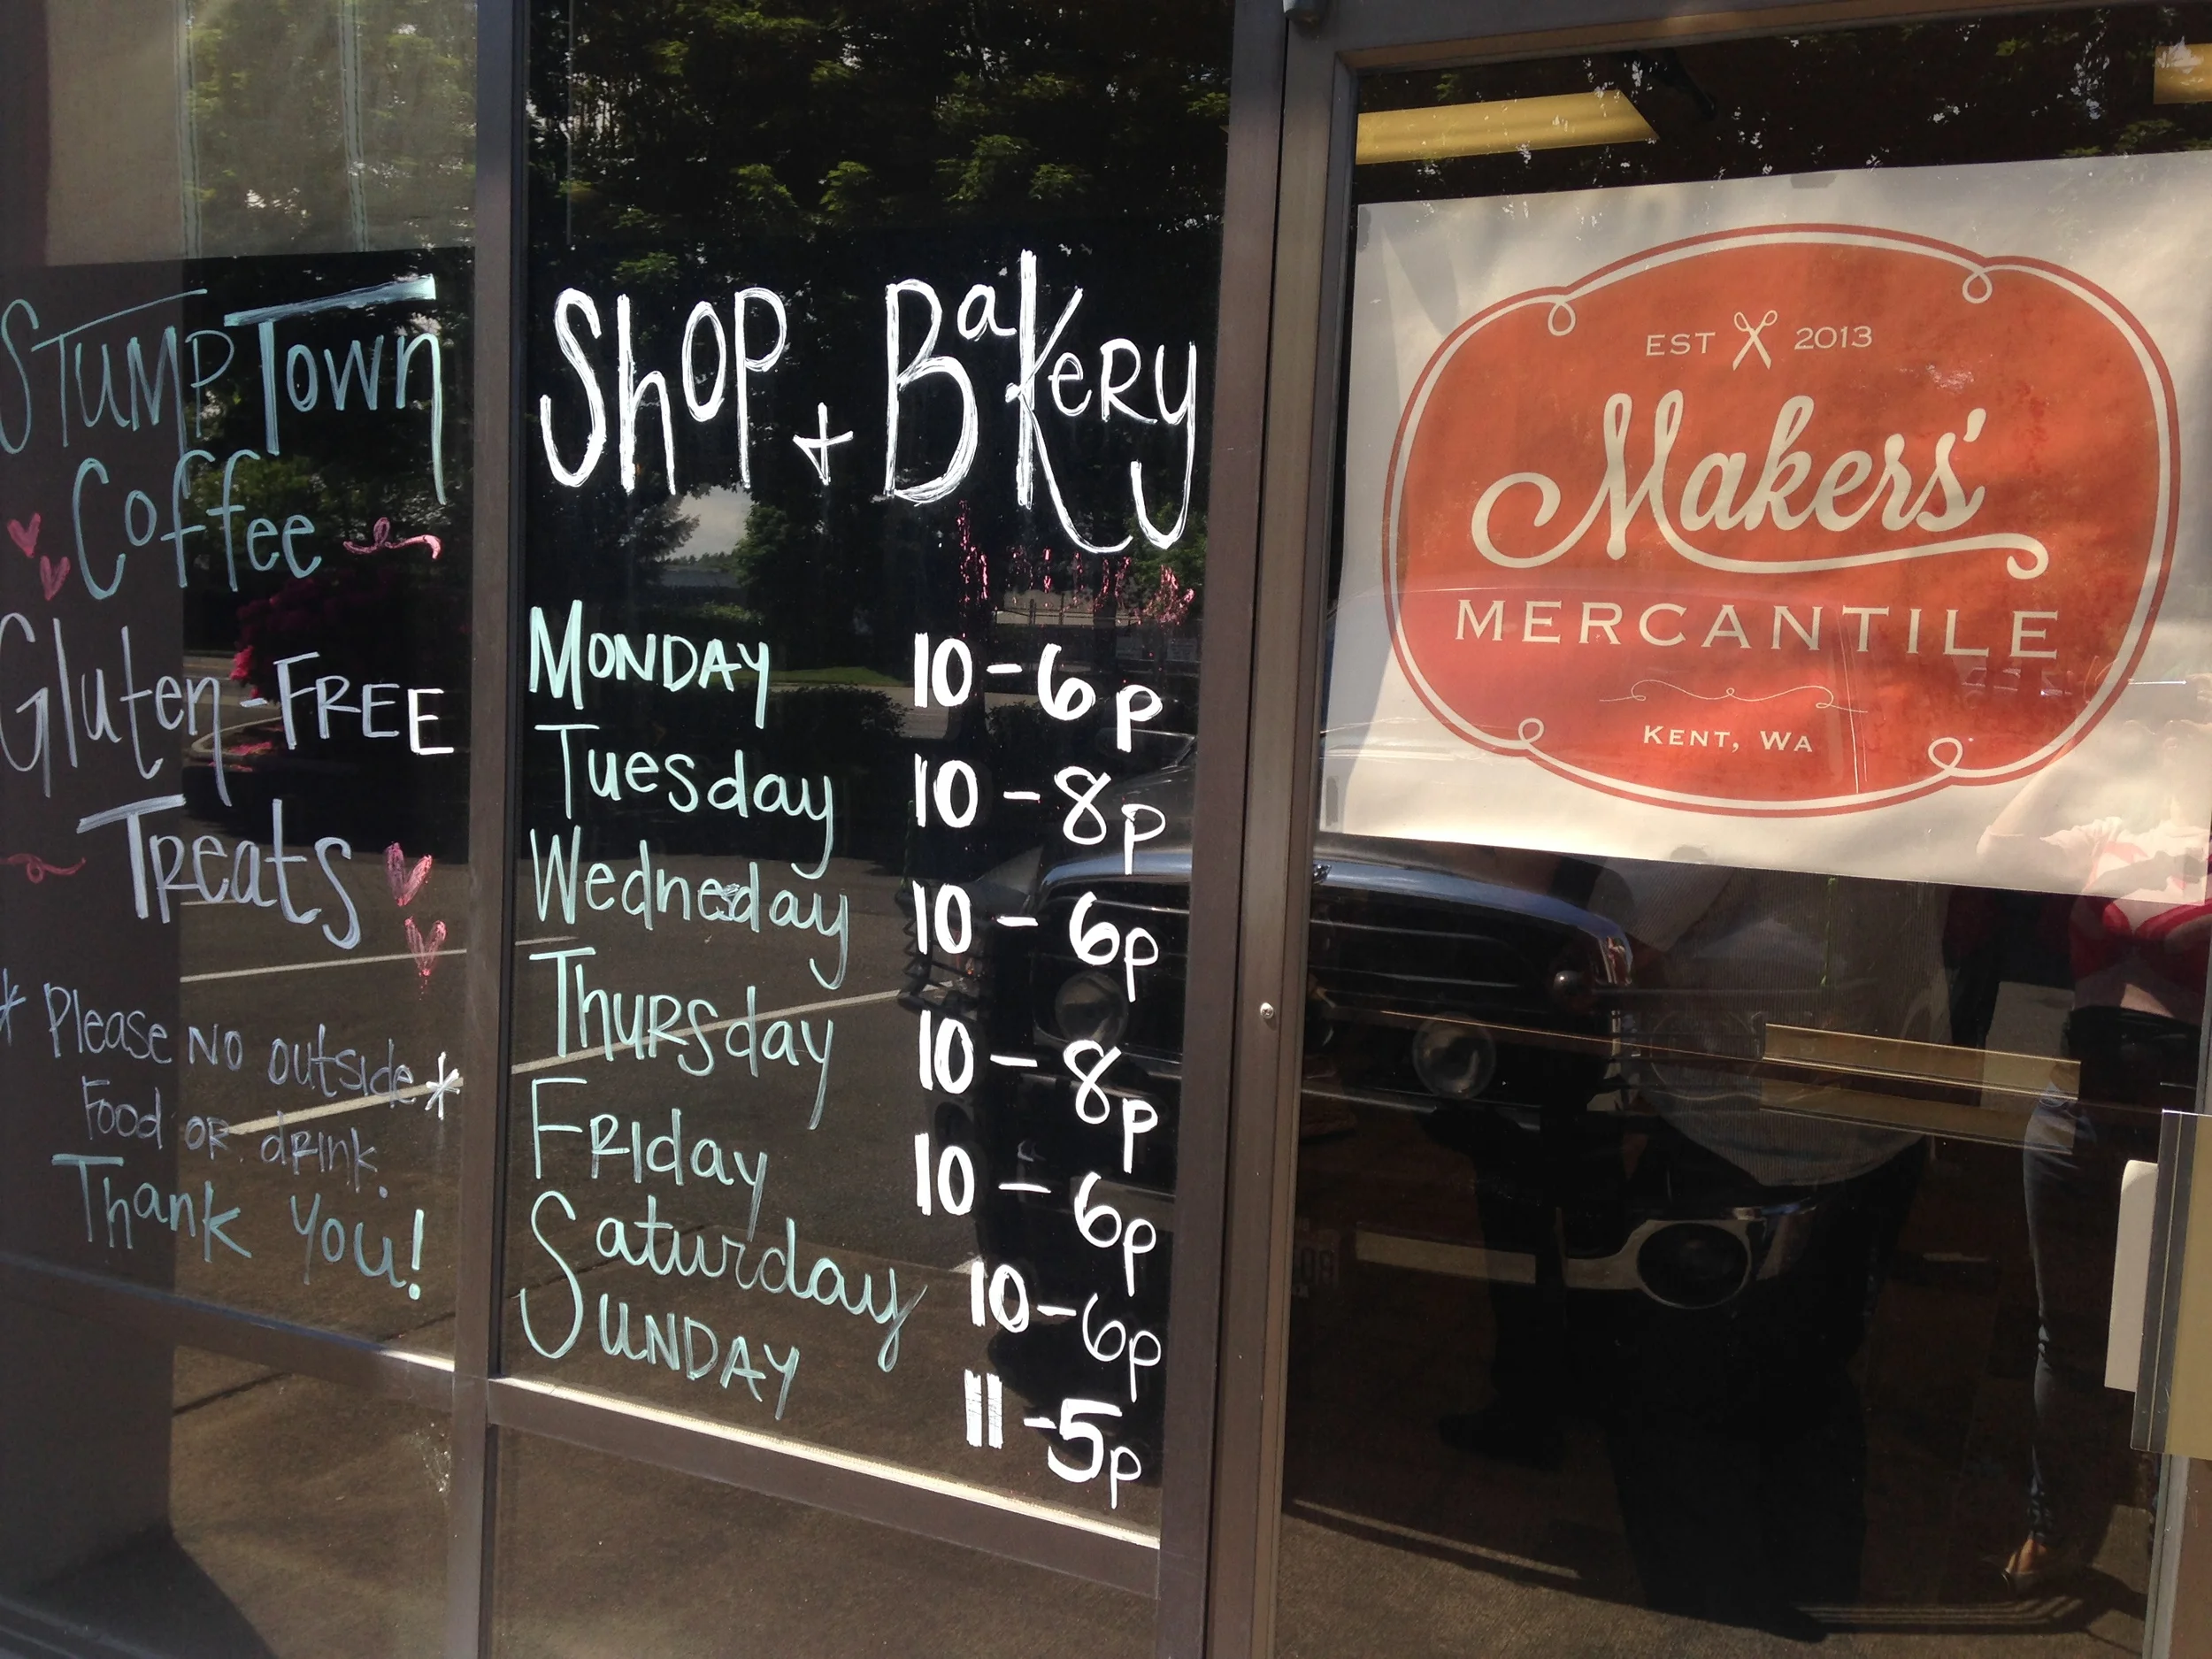 StumpTown
Coffee
Gluten-FREE
Treats
* Please NO outside *
Food or drink.
Thank you!
Shop + Bakery
Monday 10-6p
Tuesday 10-8p
Wednesday 10-6p
Thursday 10-8p
Friday 10-6p
Saturday 10-6p
Sunday 11-5p
EST 2013
Makers'
MERCANTILE
KENT, WA